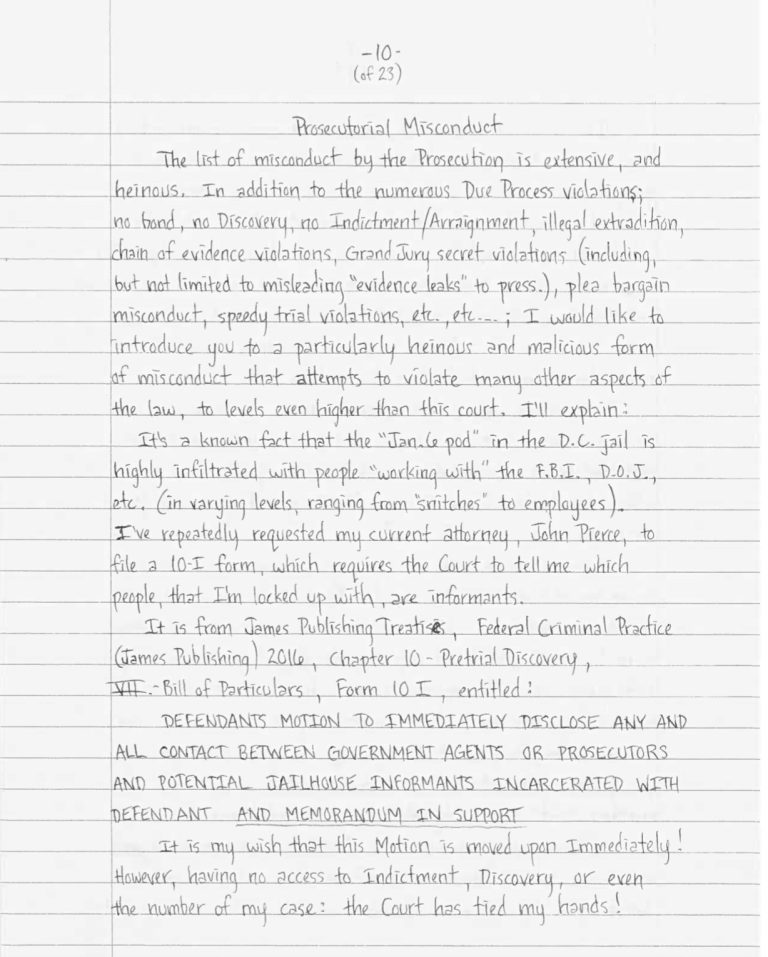 -10-
(of 23)
Prosecutorial Misconduct
The list of misconduct by the Prosecution is extensive, and
heinous. In addition to the numerous Due Process violations;
no bond, no Discovery, no Indictment/Arraignment, illegal extradition,
chain of evidence violations, Grand Jury secret violations (including,
but not limited to misleading "evidence leaks" to press.), plea bargain
misconduct, speedy trial violations, etc., etc...; I would like to
introduce you to a particularly heinous and malicious form
of misconduct that attempts to violate many other aspects of
the law, to levels even higher than this court. I'll explain:
It's a known fact that the "Jan. 6 pod" in the D.C. jail is
highly infiltrated with people "working with" the F.B.I., D.O.J.,
etc. (in varying levels, ranging from "snitches" to employees).
I've repeatedly requested my current attorney, John Pierce, to
file a 10-I form, which requires the Court to tell me which
people, that I'm locked up with, are informants.
It is from James Publishing Treatises, Federal Criminal Practice
(James Publishing) 2016, Chapter 10 - Pretrial Discovery,
VII.- Bill of Particulars, Form 10 I, entitled:
DEFENDANTS MOTION TO IMMEDIATELY DISCLOSE ANY AND
ALL CONTACT BETWEEN GOVERNMENT AGENTS OR PROSECUTORS
AND POTENTIAL JAILHOUSE INFORMANTS INCARCERATED WITH
DEFENDANT AND MEMORANDUM IN SUPPORT
It is my wish that this Motion is moved upon Immediately!
However, having no access to Indictment, Discovery, or even
the number of my case: the Court has tied my hands!